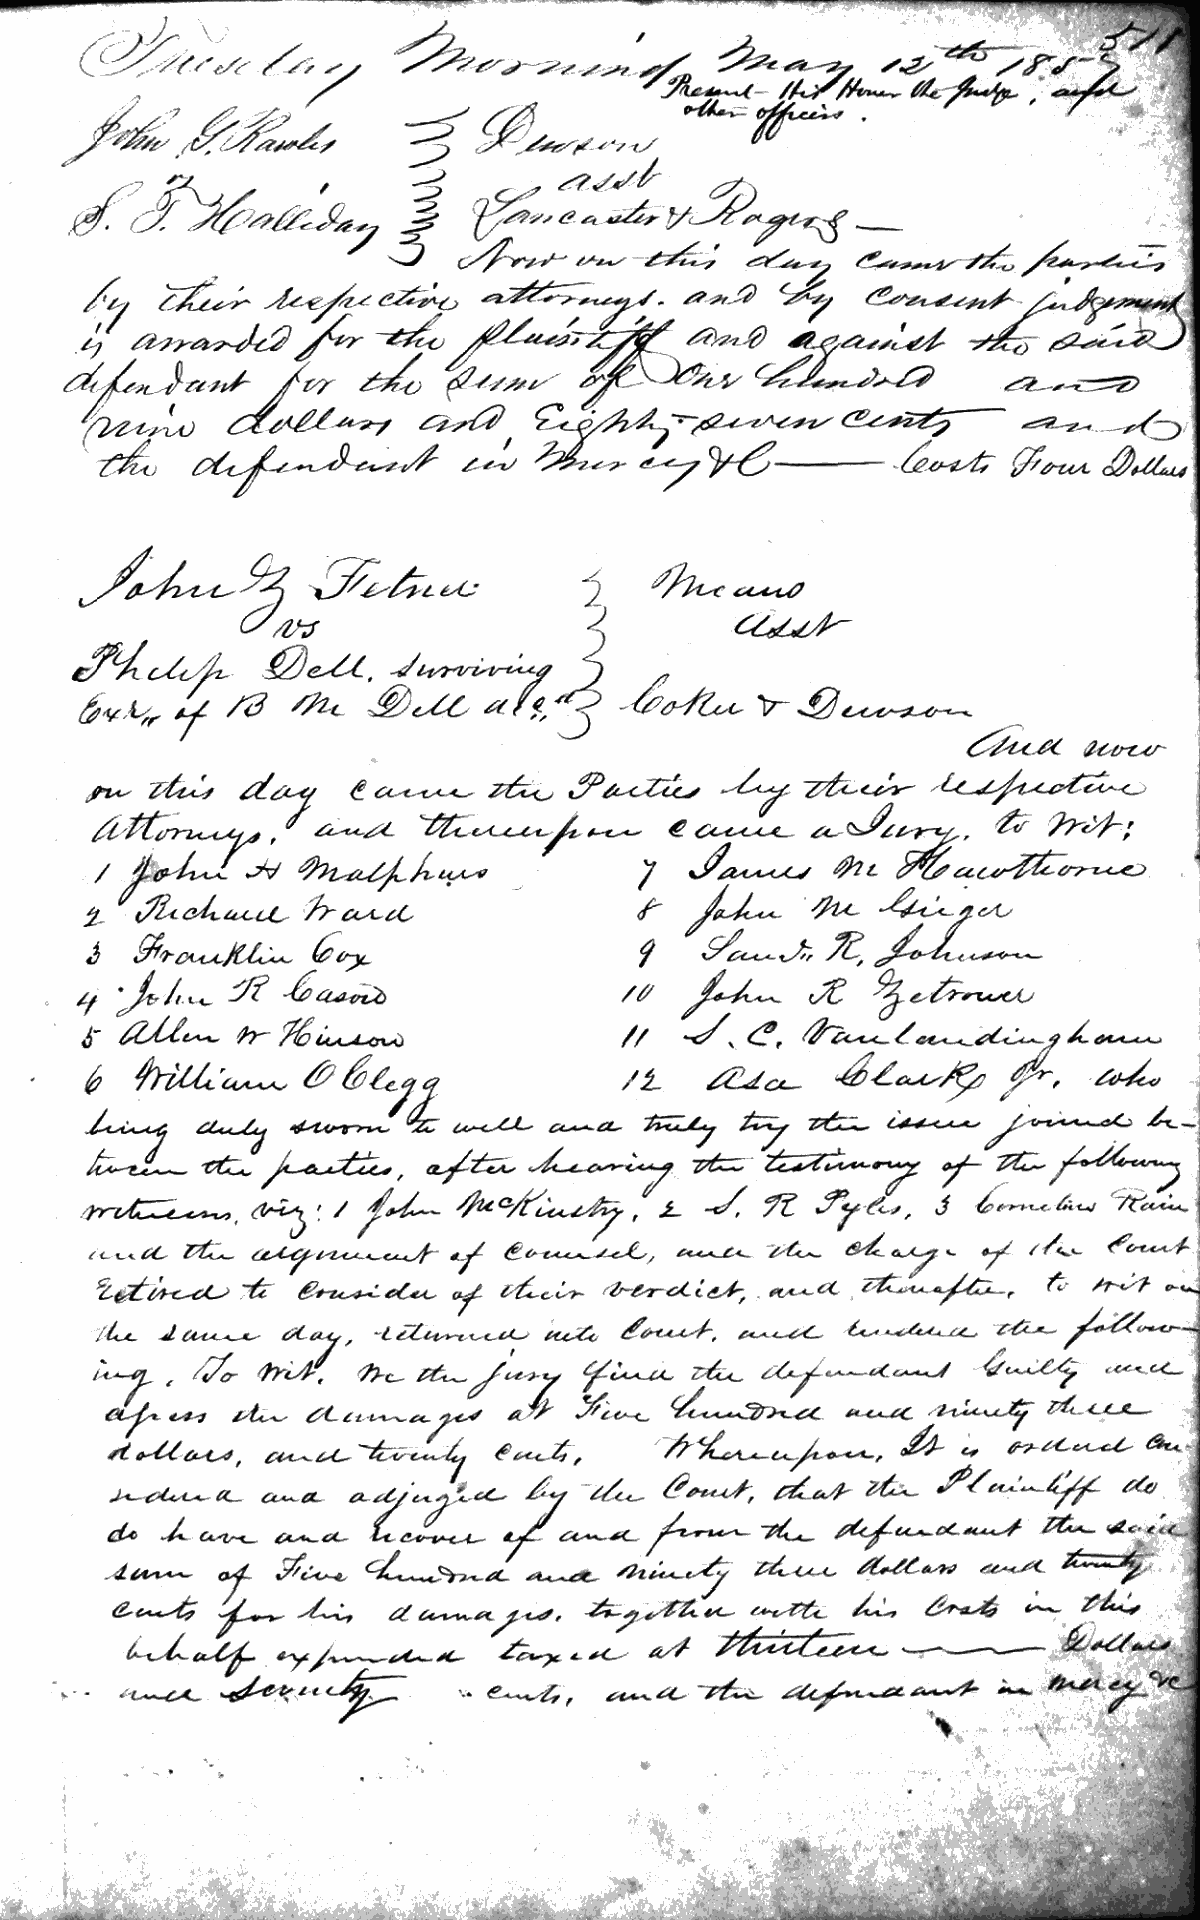 511
Tuesday Morning May 12th 1857
Present His Honor the Judge, and
other officers.
John G. Rawls } Dewson
vs asst
S. T. Halliday } Lancaster & Rogers —
Now on this day came the parties
by their respective attorneys. and by consent judgement
is awarded for the plaintiff and against the said
defendant for the sum of One hundred and
nine dollars and Eighty-seven cents and
the defendant in Mercy &C — Costs Four Dollars
John Z Fetner } Means
vs asst
Philip Dell, surviving
Exr,, of B M Dell decd } Coker & Dewson
And now
on this day came the Parties by their respective
Attorneys, and thereupon came a Jury, to wit:
1 John H Malphurs 7 James M Hawthorne
2 Richard Ward 8 John M Gieger
3 Franklin Cox 9 Saml,, R, Johnson
4 John R Cason 10 John R Zetrouer
5 Allen W Hinson 11 S. C. Vanlandingham
6 William O Clegg 12 Asa Clark Jr. who
being duly sworn to well and truly try the issue joined be-
tween the parties, after hearing the testimony of the following
witnesses, viz: 1 John McKinstry, 2 S. R Pyles, 3 Cornelius Rain
and the argument of Counsel, and the charge of the Court
retired to consider of their verdict, and thereafter, to wit on
the same day, returned into Court, and rendered the follow-
ing, To wit, We the jury find the defendant Guilty and
assess the damages at Five hundred and ninety three
dollars, and twenty cents. Whereupon, It is ordered con
sidered and adjuged by the Court, that the Plaintiff do
do have and recover of and from the defendant the said
sum of Five hundred and ninety three dollars and twenty
cents for his damages, together with his Costs in this
behalf expended taxed at thirteen — Dollars
and seventy cents, and the defendant in mercy &c